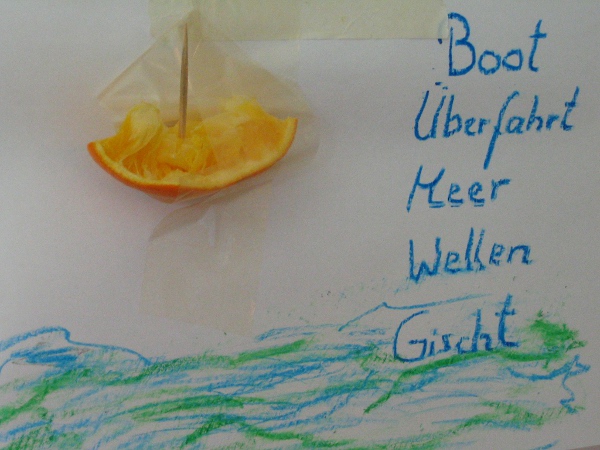 Boot
Überfahrt
Meer
Wellen
Gischt